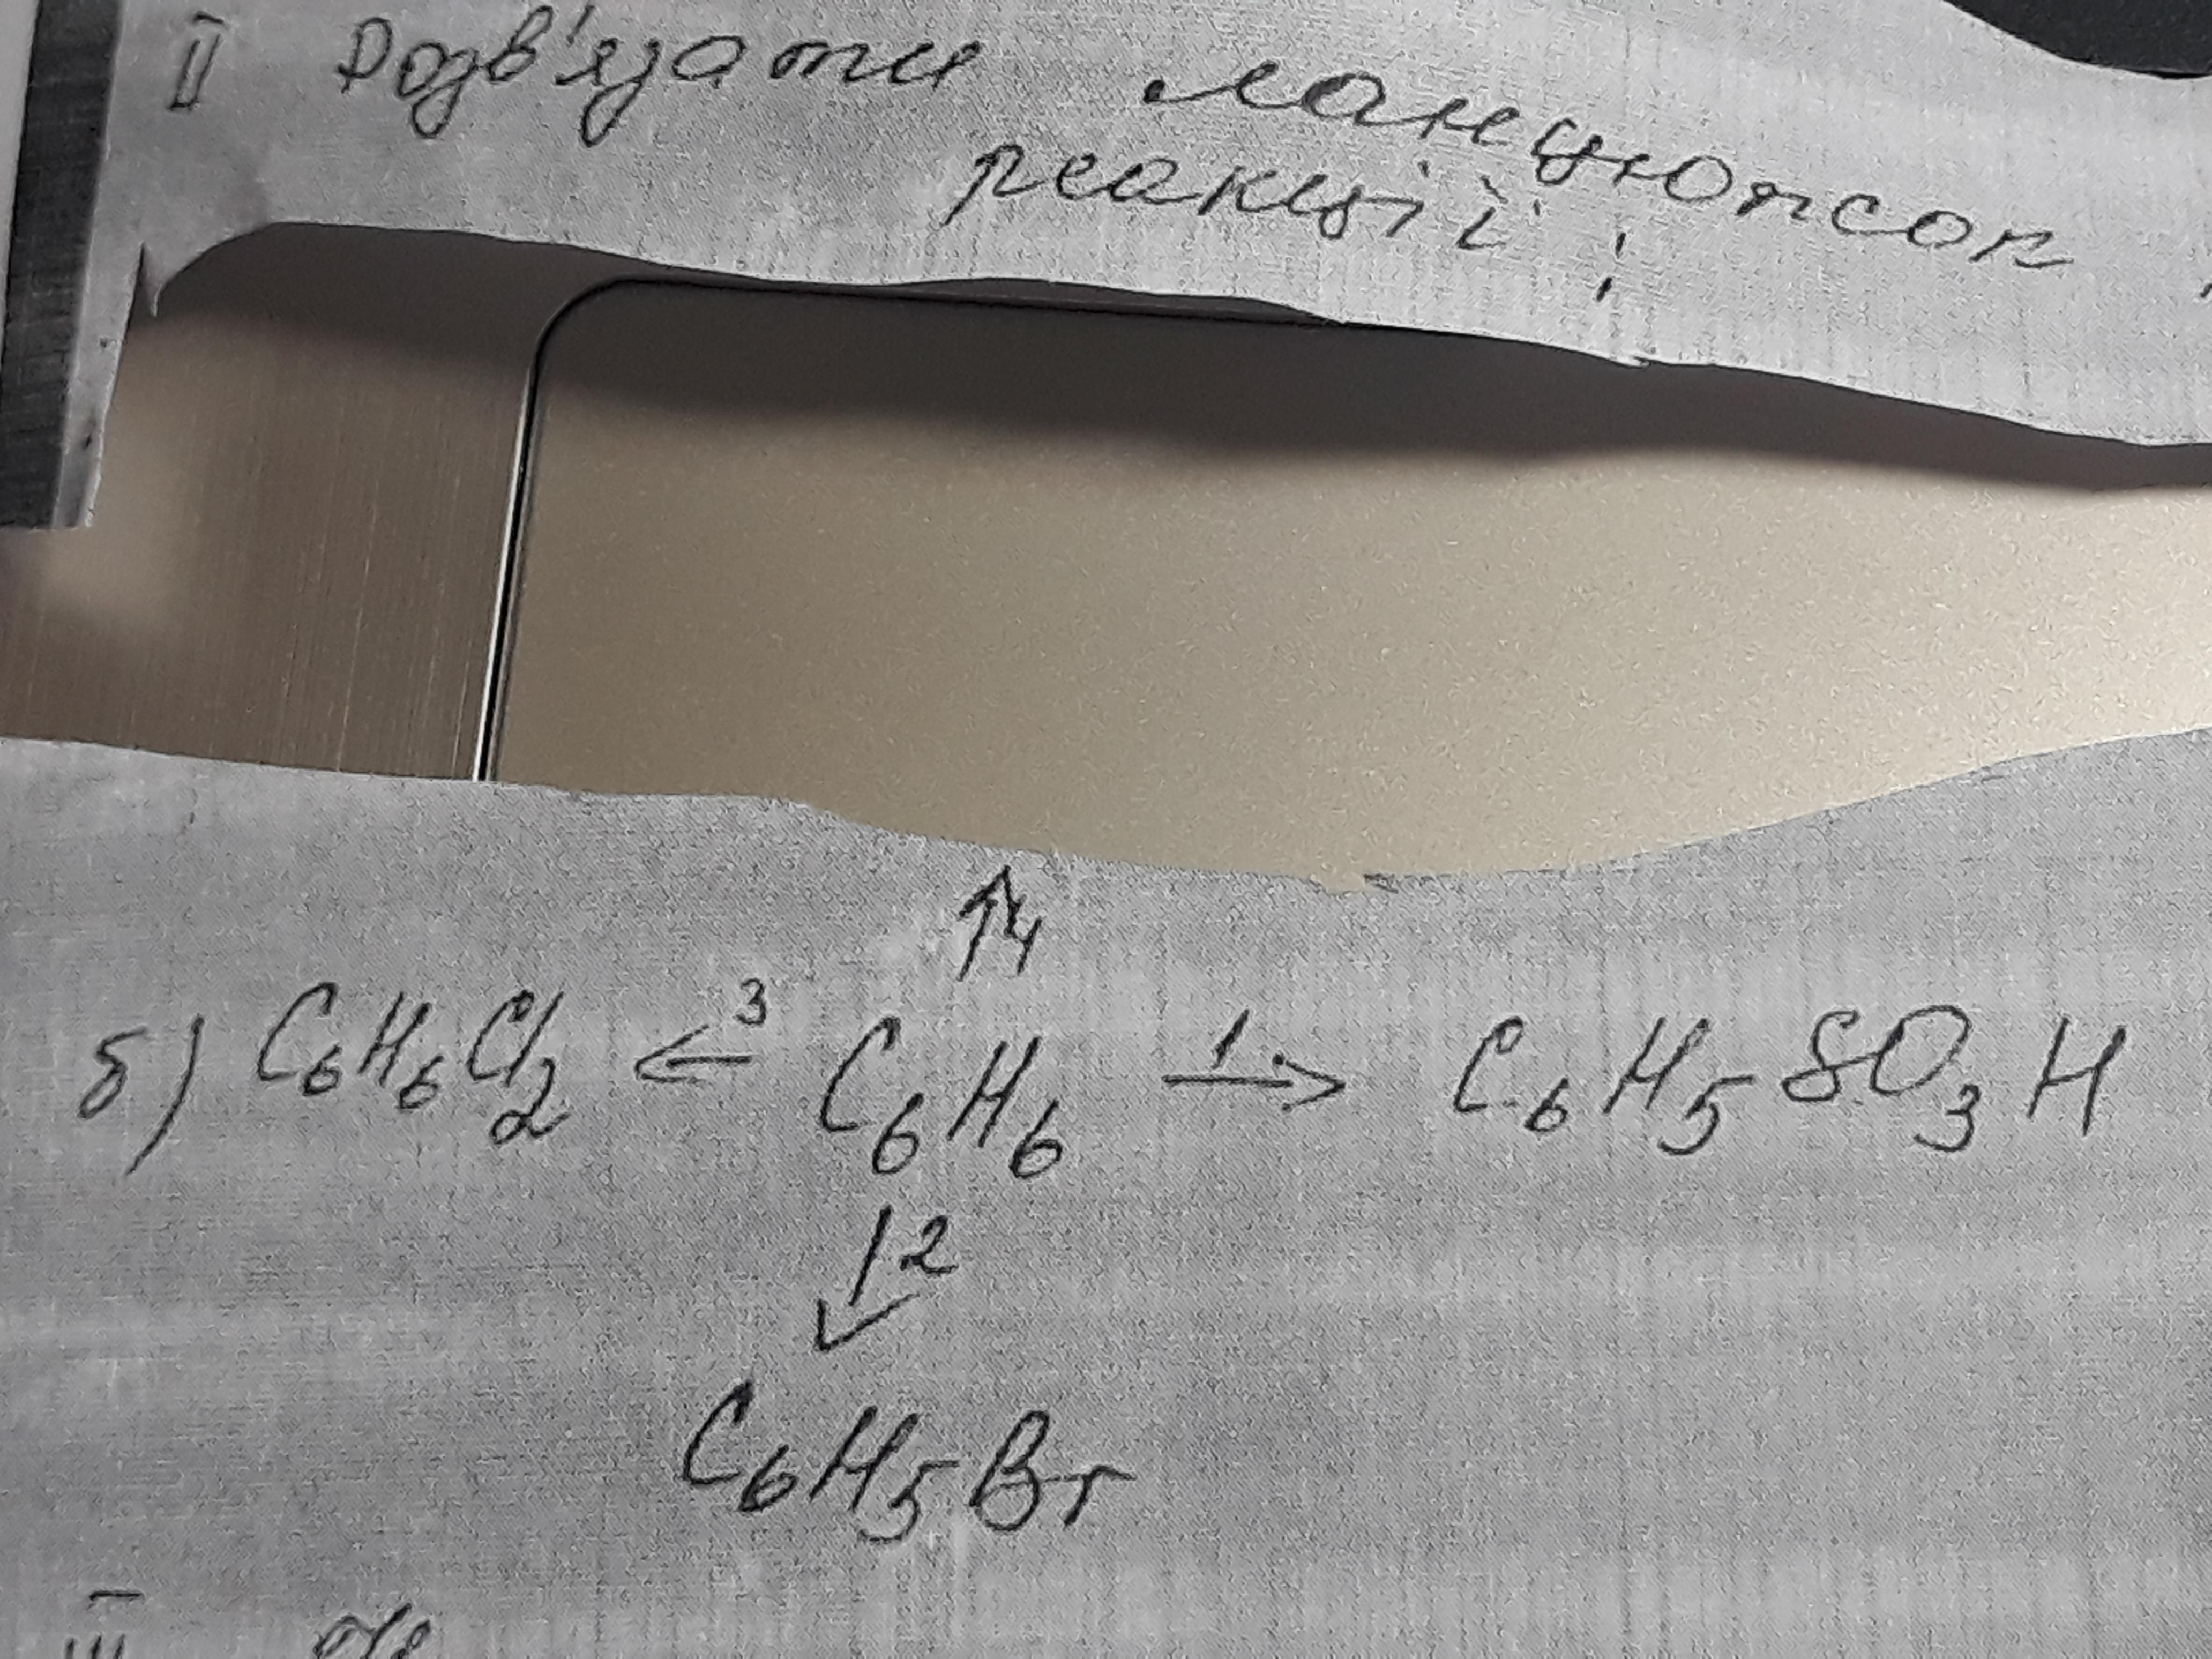 II Розв'язати ланцюжок
реакцій:
↑4
б) C₆H₆Cl₂ ←3 C₆H₆ 1→ C₆H₅SO₃H
↓2
C₆H₅Br
III